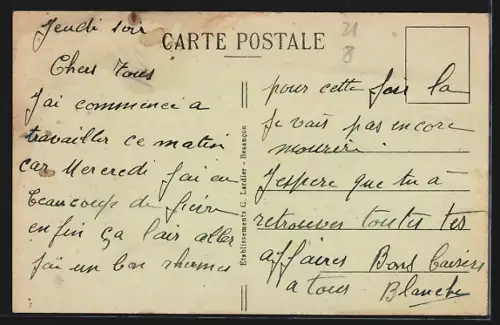 CARTE POSTALE
21
8
Jeudi soir
Chers Tous
J'ai commencé a
travailler ce matin
car Mercredi j'ai eu
beaucoup de fièvre
enfin ça l'air aller
j'ai un bon rhume
Etablissements C. Lardier - Besançon
pour cette fois la
je vais pas encore
mourir.
J'espère que tu à
retrouver toutes tes
affaires Bons baisers
a tous Blanche